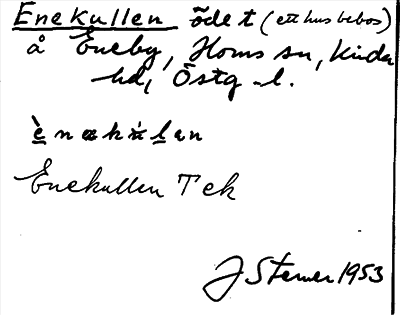 Enekullen ödet (ett hus bebos)
å Eneby, Horns sn, Kinda
hd, Östg. l.
Enekullen Tek
J Sterner 1953